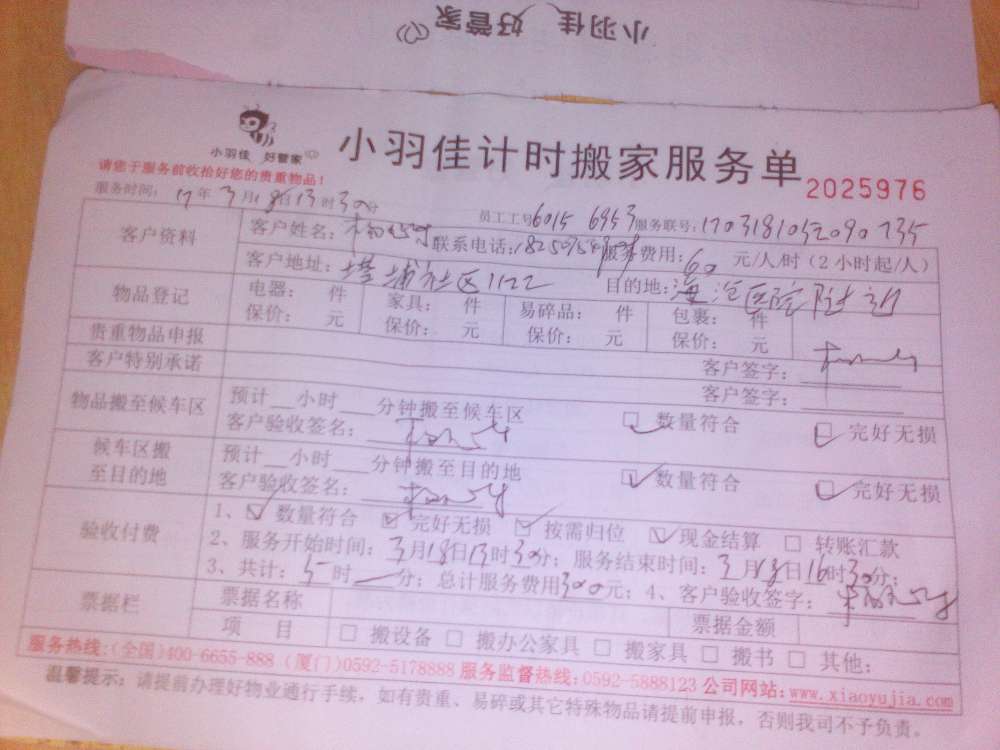 小羽佳 好管家
小羽佳 好管家
小羽佳计时搬家服务单
2025976
请您于服务前收拾好您的贵重物品！
服务时间：17年3月18日13时30分
员工工号6015 6953服务联号：
客户资料
客户姓名： 联系电话： 服务费用：60 元/人/时（2小时起/人）
客户地址：塔埔社区1122 目的地：
物品登记
电器： 件 家具： 件 易碎品： 件 包裹： 件
保价： 元 保价： 元 保价： 元 保价： 元
贵重物品申报 客户签字：
客户特别承诺 客户签字：
物品搬至候车区
预计__小时__分钟搬至候车区
客户验收签名：
数量符合 完好无损
候车区搬
至目的地
预计__小时__分钟搬至目的地
客户验收签名：
数量符合 完好无损
验收付费
1、☑数量符合 ☑完好无损 ☑按需归位 ☑现金结算 □转账汇款
2、服务开始时间：3月18日13时30分；服务结束时间：3月18日16时30分；
3、共计：5时__分；总计服务费用300元；4、客户验收签字：
票据栏
票据名称 票据金额
项 目 □搬设备 □搬办公家具 □搬家具 □搬书 □其他：
服务热线：(全国)400-6655-888 (厦门)0592-5178888 服务监督热线：0592-5888123 公司网站：www.xiaoyujia.com
温馨提示：请提前办理好物业通行手续，如有贵重、易碎或其它特殊物品请提前申报，否则我司不予负责。